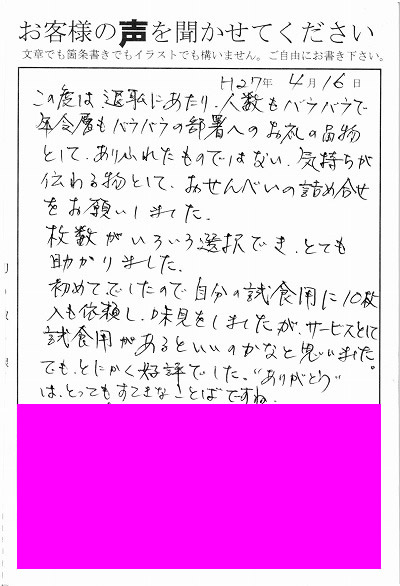 お客様の声を聞かせてください
文章でも箇条書きでもイラストでも構いません。ご自由にお書き下さい。
H27年 4月16日
この度は退職にあたり、人数もバラバラで
年令層もバラバラの部署へのお礼の品物
として、ありふれたものではない、気持ちが
伝わる物として、おせんべいの詰め合せ
をお願いしました。
枚数がいろいろ選択でき、とても
助かりました。
初めてでしたので自分の試食用に10枚
入も依頼し、味見をしましたが、サービスとして
試食用があるといいのかなと思いました。
でも、とにかく好評でした。"ありがとう"
は、とってもすてきなことばですね。